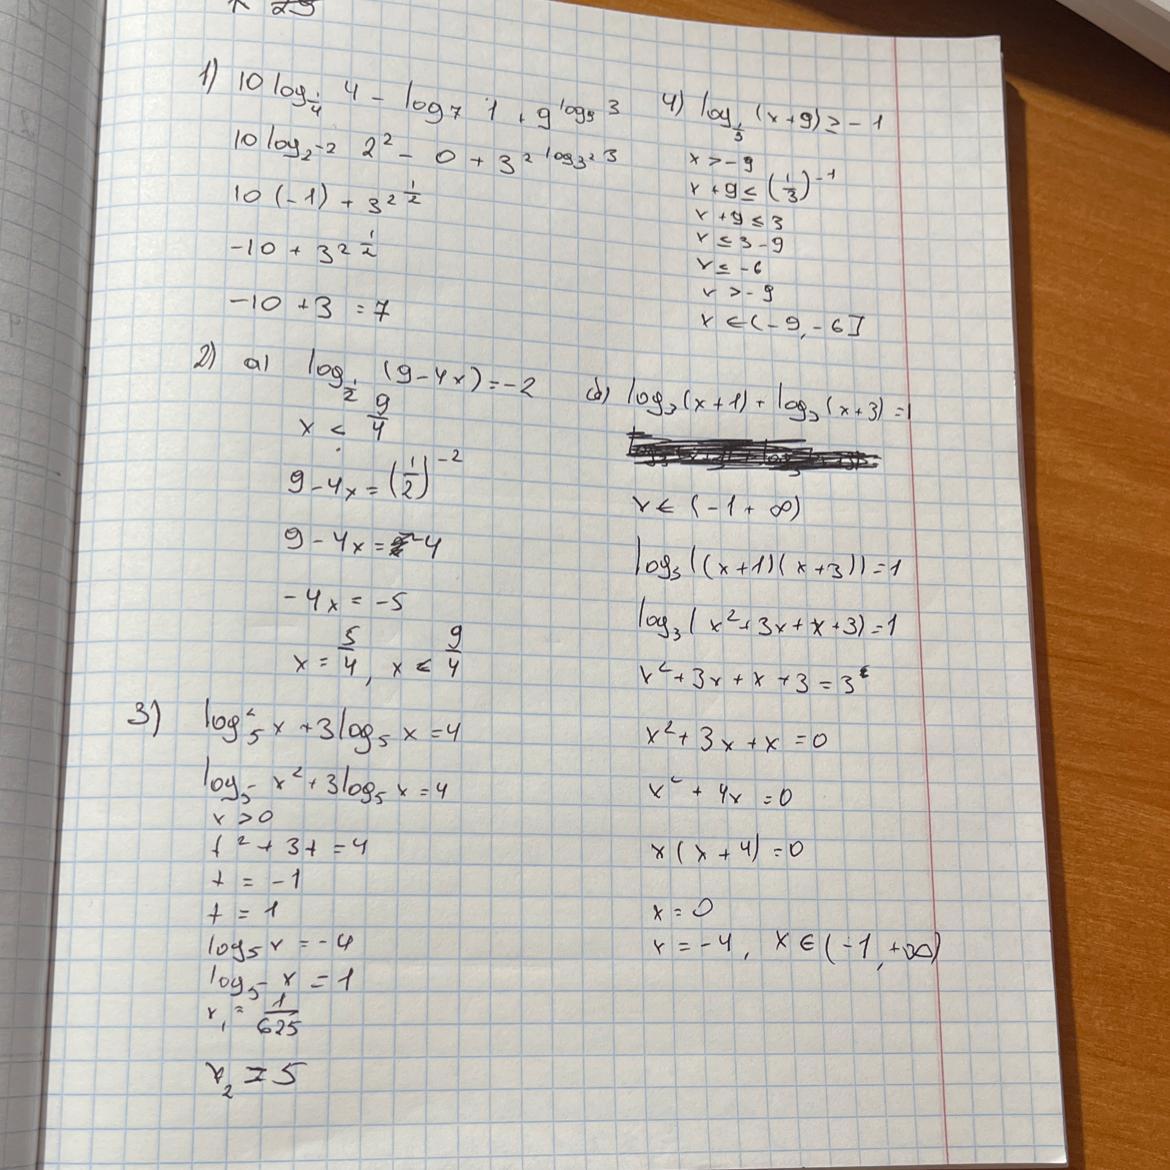 1) 10 log_{1/4} 4 - log_7 1 + 9^{log_9 3}
10 log_{2^{-2}} 2^2 - 0 + 3^{2 log_{3^2} 3}
10 (-1) + 3^{2 \frac{1}{2}}
-10 + 3^{2 \frac{1}{2}}
-10 + 3 = 7
2) a) log_{1/2} (9-4x) = -2
x < \frac{9}{4}
9 - 4x = (\frac{1}{2})^{-2}
9 - 4x = 4
-4x = -5
x = \frac{5}{4}, x < \frac{9}{4}
3) log_5^2 x + 3 log_5 x = 4
log_5 x^2 + 3 log_5 x = 4
x > 0
t^2 + 3t = 4
t = -1
t = 1
log_5 x = -4
log_5 x = 1
x_1 = \frac{1}{625}
x_2 = 5
4) log_{1/3} (x+9) ≥ -1
x > -9
x + 9 ≤ (\frac{1}{3})^{-1}
x + 9 ≤ 3
x ≤ 3 - 9
x ≤ -6
x > -9
x ∈ (-9, -6]
log_3 (x+1) + log_3 (x+3) = 1
x ∈ (-1 + ∞)
log_3 ((x+1)(x+3)) = 1
log_3 (x^2 + 3x + x + 3) = 1
x^2 + 3x + x + 3 = 3
x^2 + 3x + x = 0
x^2 + 4x = 0
x (x + 4) = 0
x = 0
x = -4, x ∈ (-1, +∞)